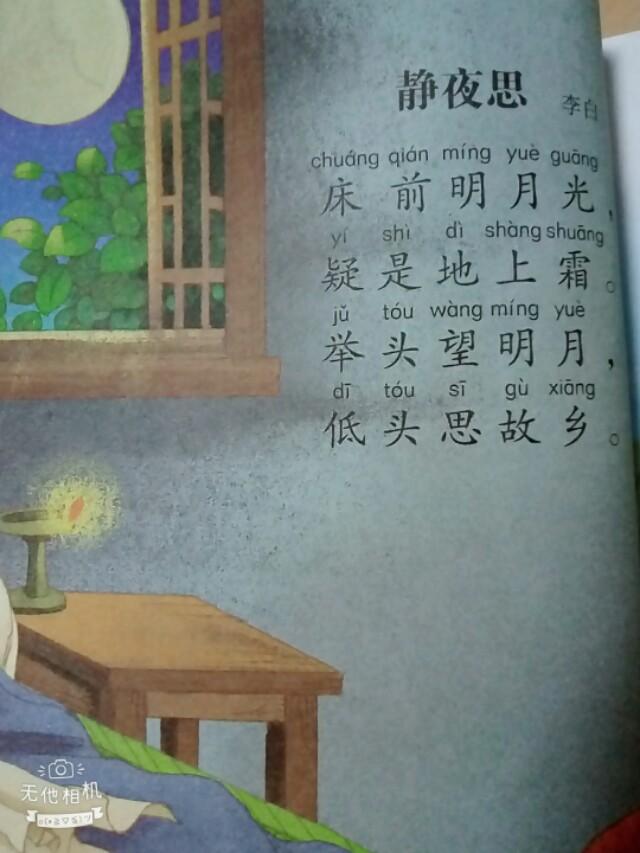 静夜思 李白
chuáng qián míng yuè guāng
床前明月光，
yí shì dì shàng shuāng
疑是地上霜。
jǔ tóu wàng míng yuè
举头望明月，
dī tóu sī gù xiāng
低头思故乡。
无他相机